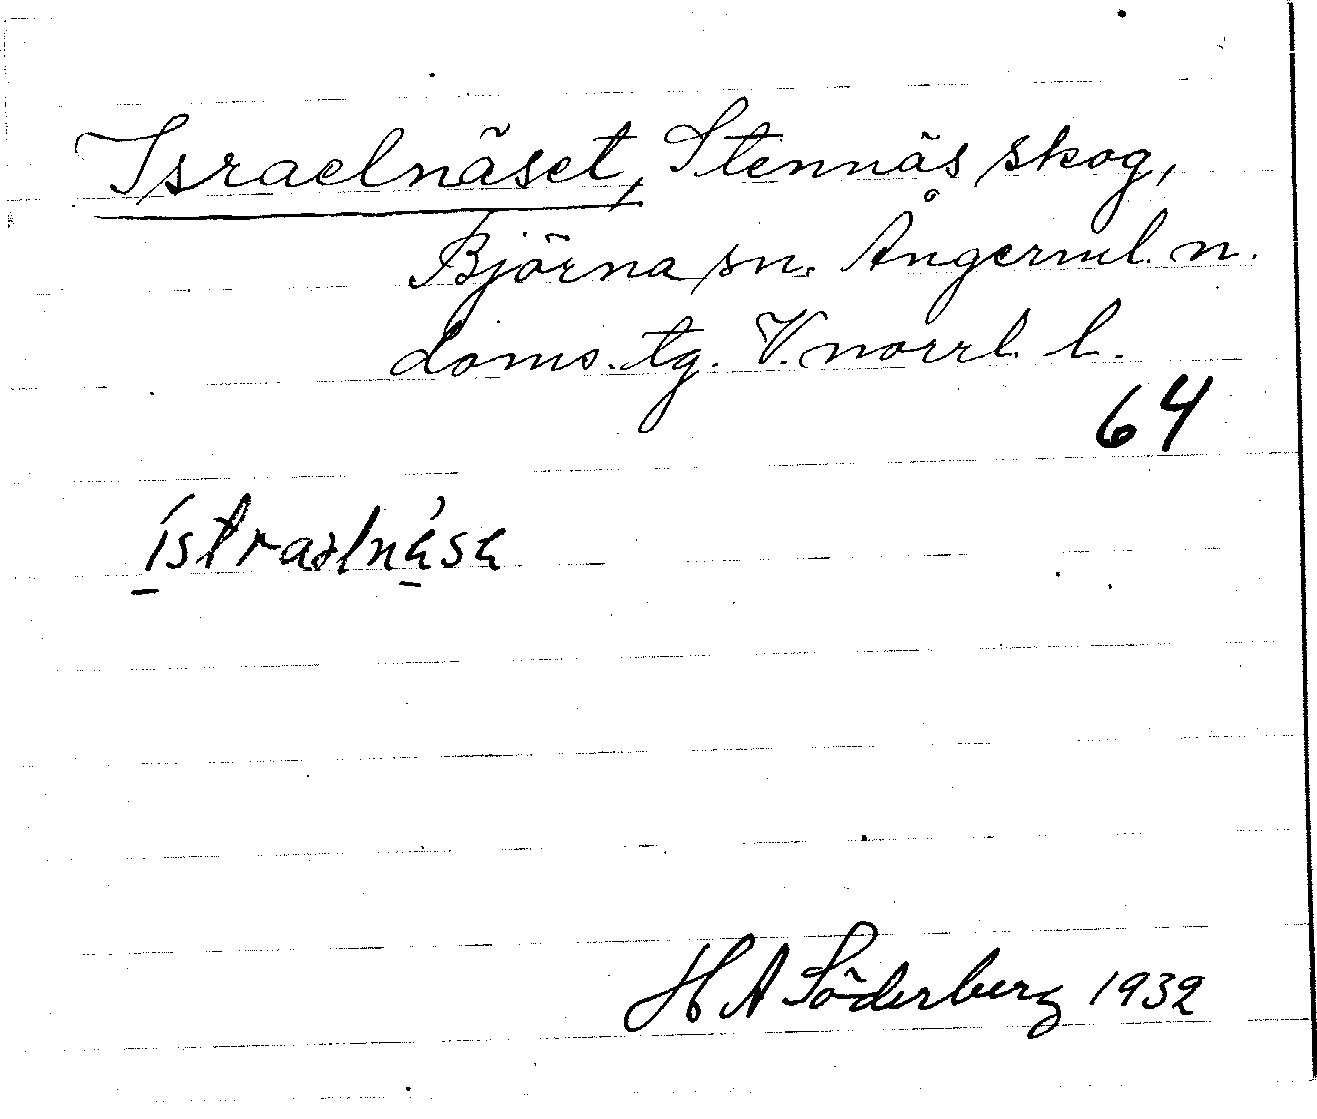 Israelnäset, Stennäs skog,
Björna sn. Ångerml. n.
doms. tg. V. norrl. l.
64
H A Söderberg 1932